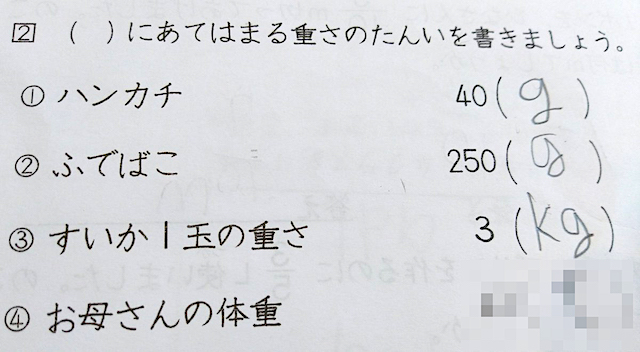 2 （ ）にあてはまる重さのたんいを書きましょう。
① ハンカチ 40（g）
② ふでばこ 250（g）
③ すいか1玉の重さ 3（kg）
④ お母さんの体重